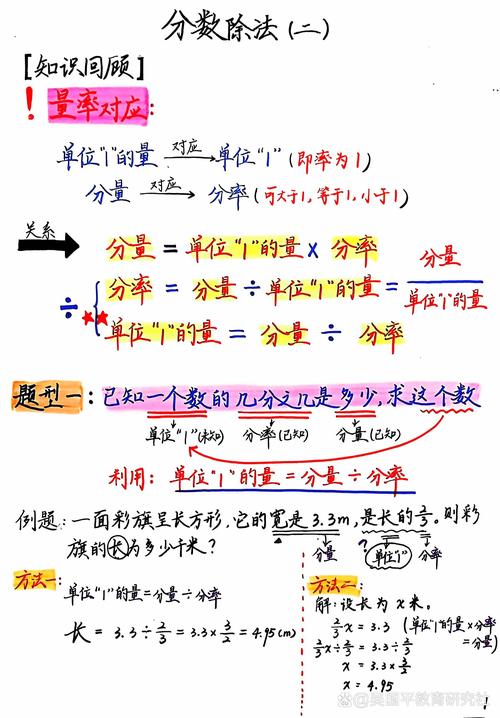 分数除法(二)
[知识回顾]
! 量率对应:
单位"1"的量 对应→ 单位"1" (即率为1)
分量 对应→ 分率 (可大于1,等于1,小于1)
关系
分量 = 单位"1"的量 × 分率
÷ { 分率 = 分量 ÷ 单位"1"的量 = 分量/单位"1"的量
★★ 单位"1"的量 = 分量 ÷ 分率
题型一: 已知一个数的几分之几是多少,求这个数
单位"1"(未知) 分率(已知) 分量(已知)
利用: 单位"1"的量=分量÷分率
例题: 一面彩旗呈长方形,它的宽是3.3m,是长的2/3。则彩
旗的长为多少千米?
分量 ? 单位"1" 分率
方法一:
单位"1"的量=分量÷分率
长 = 3.3÷2/3 = 3.3×3/2 = 4.95(m)
方法二:
解:设长为x米。
2/3x = 3.3 (单位"1"的量×分率
=分量)
2/3x÷2/3 = 3.3÷2/3
x = 3.3×3/2
x = 4.95
@吴国平教育研究社